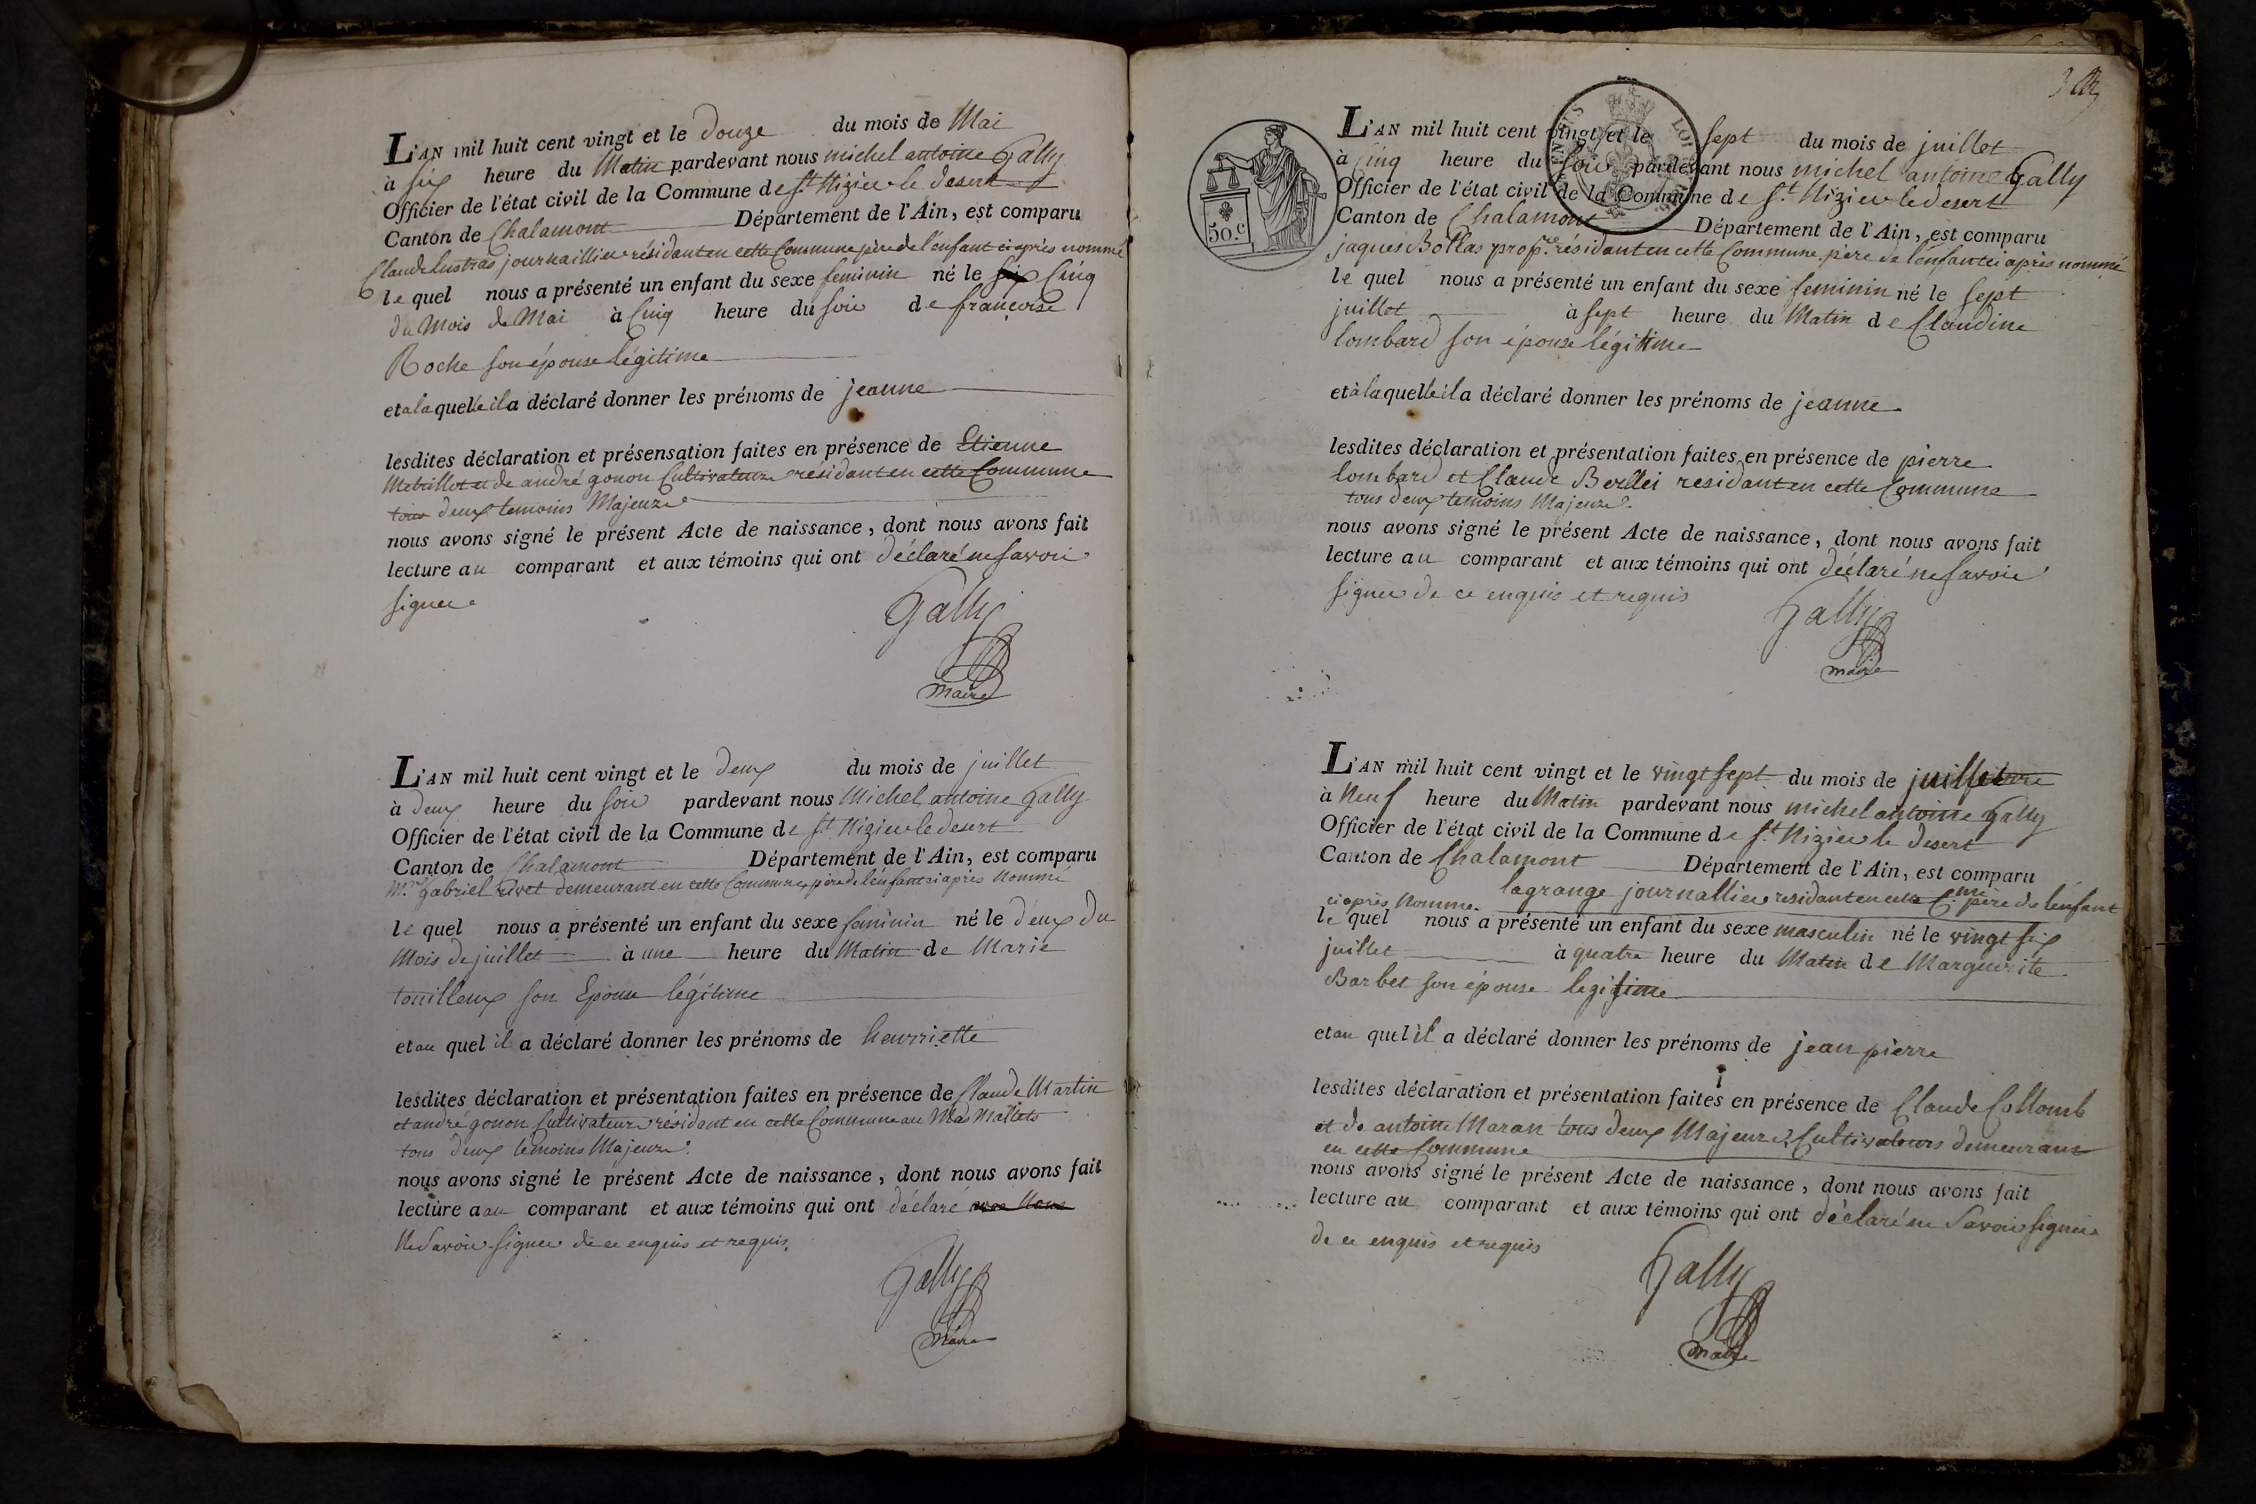 L'AN mil huit cent vingt et le douze du mois de Mai
à six heure du Matin pardevant nous michel antoine Gally
Officier de l'état civil de la Commune de St. Nizier le desert
Canton de Chalamont Département de l'Ain, est comparu
Claude lustras journaillier résidant en cette Commune père de l'enfant ci après nommé
le quel nous a présenté un enfant du sexe feminin né le six Cinq
du Mois de Mai à Cinq heure du soir de françoise
Roche son épouse légitime
et a la quelle il a déclaré donner les prénoms de jeanne
lesdites déclaration et présensation faites en présence de Etienne
et de andré gonon Cultivateurs résidant en cette Commune
tous deux temoins Majeurs
nous avons signé le présent Acte de naissance, dont nous avons fait
lecture au comparant et aux témoins qui ont déclaré ne savoir
signer
Gally
Maire
L'AN mil huit cent vingt et le deux du mois de juillet
à deux heure du soir pardevant nous Michel antoine Gally
Officier de l'état civil de la Commune de St Nizier le desert
Canton de Chalamont Département de l'Ain, est comparu
Mr. Gabriel rivet demeurant en cette Commune, père de l'enfant ci après Nommé
le quel nous a présenté un enfant du sexe feminin né le deux du
Mois de juillet à une heure du Matin de Marie
touilleux son Epouse légitime
et au quel il a déclaré donner les prénoms de henrriette
lesdites déclaration et présentation faites en présence de Claude Martin
et andré gonon Cultivateurs résidant en cette Commune au Mas Mallets
tous deux témoins Majeurs
nous avons signé le présent Acte de naissance, dont nous avons fait
lecture a au comparant et aux témoins qui ont déclaré
Ne Savoir signer de ce enquis et requis.
Gally
Maire
L'AN mil huit cent vingt et le sept du mois de juillet
à Cinq heure du soir pardevant nous michel antoine Gally
Officier de l'état civil de la Commune de St. Nizier le desert
Canton de Chalamont Département de l'Ain, est comparu
50.c
jaques Bollas prop.re résidant en cette Commune père de l'enfant ci après nommé
le quel nous a présenté un enfant du sexe feminin né le sept
juillet à sept heure du Matin de Claudine
lombard son épouse légitime
et à la quelle il a déclaré donner les prénoms de jeanne
lesdites déclaration et présentation faites en présence de pierre
lombard et Claude résidant en cette Commune
tous deux temoins Majeurs.
nous avons signé le présent Acte de naissance, dont nous avons fait
lecture au comparant et aux témoins qui ont déclaré ne savoir
signer de ce enquis et requis
Gally
maire
L'AN mil huit cent vingt et le vingt sept du mois de juillet
à Neuf heure du Matin pardevant nous michel antoine Gally
Officier de l'état civil de la Commune de St. Nizier le Desert
Canton de Chalamont Département de l'Ain, est comparu
lagrange journallier residant en cette C.ne père de l'enfant
ci après Nommé
le quel nous a présenté un enfant du sexe masculin né le vingt six
juillet à quatre heure du Matin de Marguerite
Barbet son épouse legitime
et au quel il a déclaré donner les prénoms de jean pierre
lesdites déclaration et présentation faites en présence de Claude Collomb
et de antoine Maran tous deux Majeurs, Cultivateurs demeurans
en cette Commune
nous avons signé le présent Acte de naissance, dont nous avons fait
lecture au comparant et aux témoins qui ont déclaré ne Savoir signer
de ce enquis et requis
Gally
maire